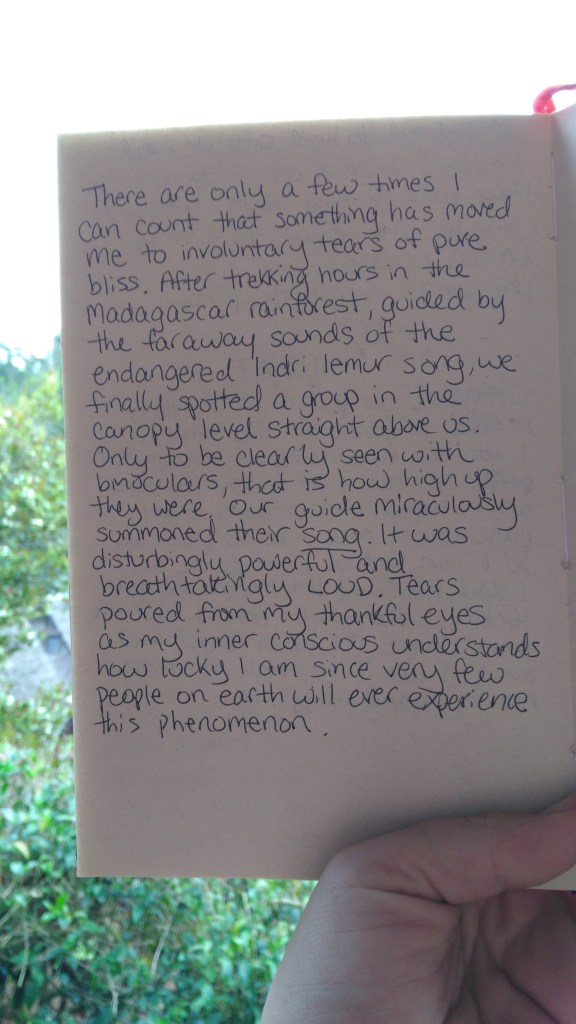 There are only a few times I
can count that something has moved
me to involuntary tears of pure
bliss. After trekking hours in the
Madagascar rainforest, guided by
the faraway sounds of the
endangered Indri lemur song, we
finally spotted a group in the
canopy level straight above us.
Only to be clearly seen with
binoculars, that is how high up
they were, our guide miraculously
summoned their song. It was
disturbingly powerful and
breathtakingly LOUD. Tears
poured from my thankful eyes
as my inner conscious understands
how lucky I am since very few
people on earth will ever experience
this phenomenon.